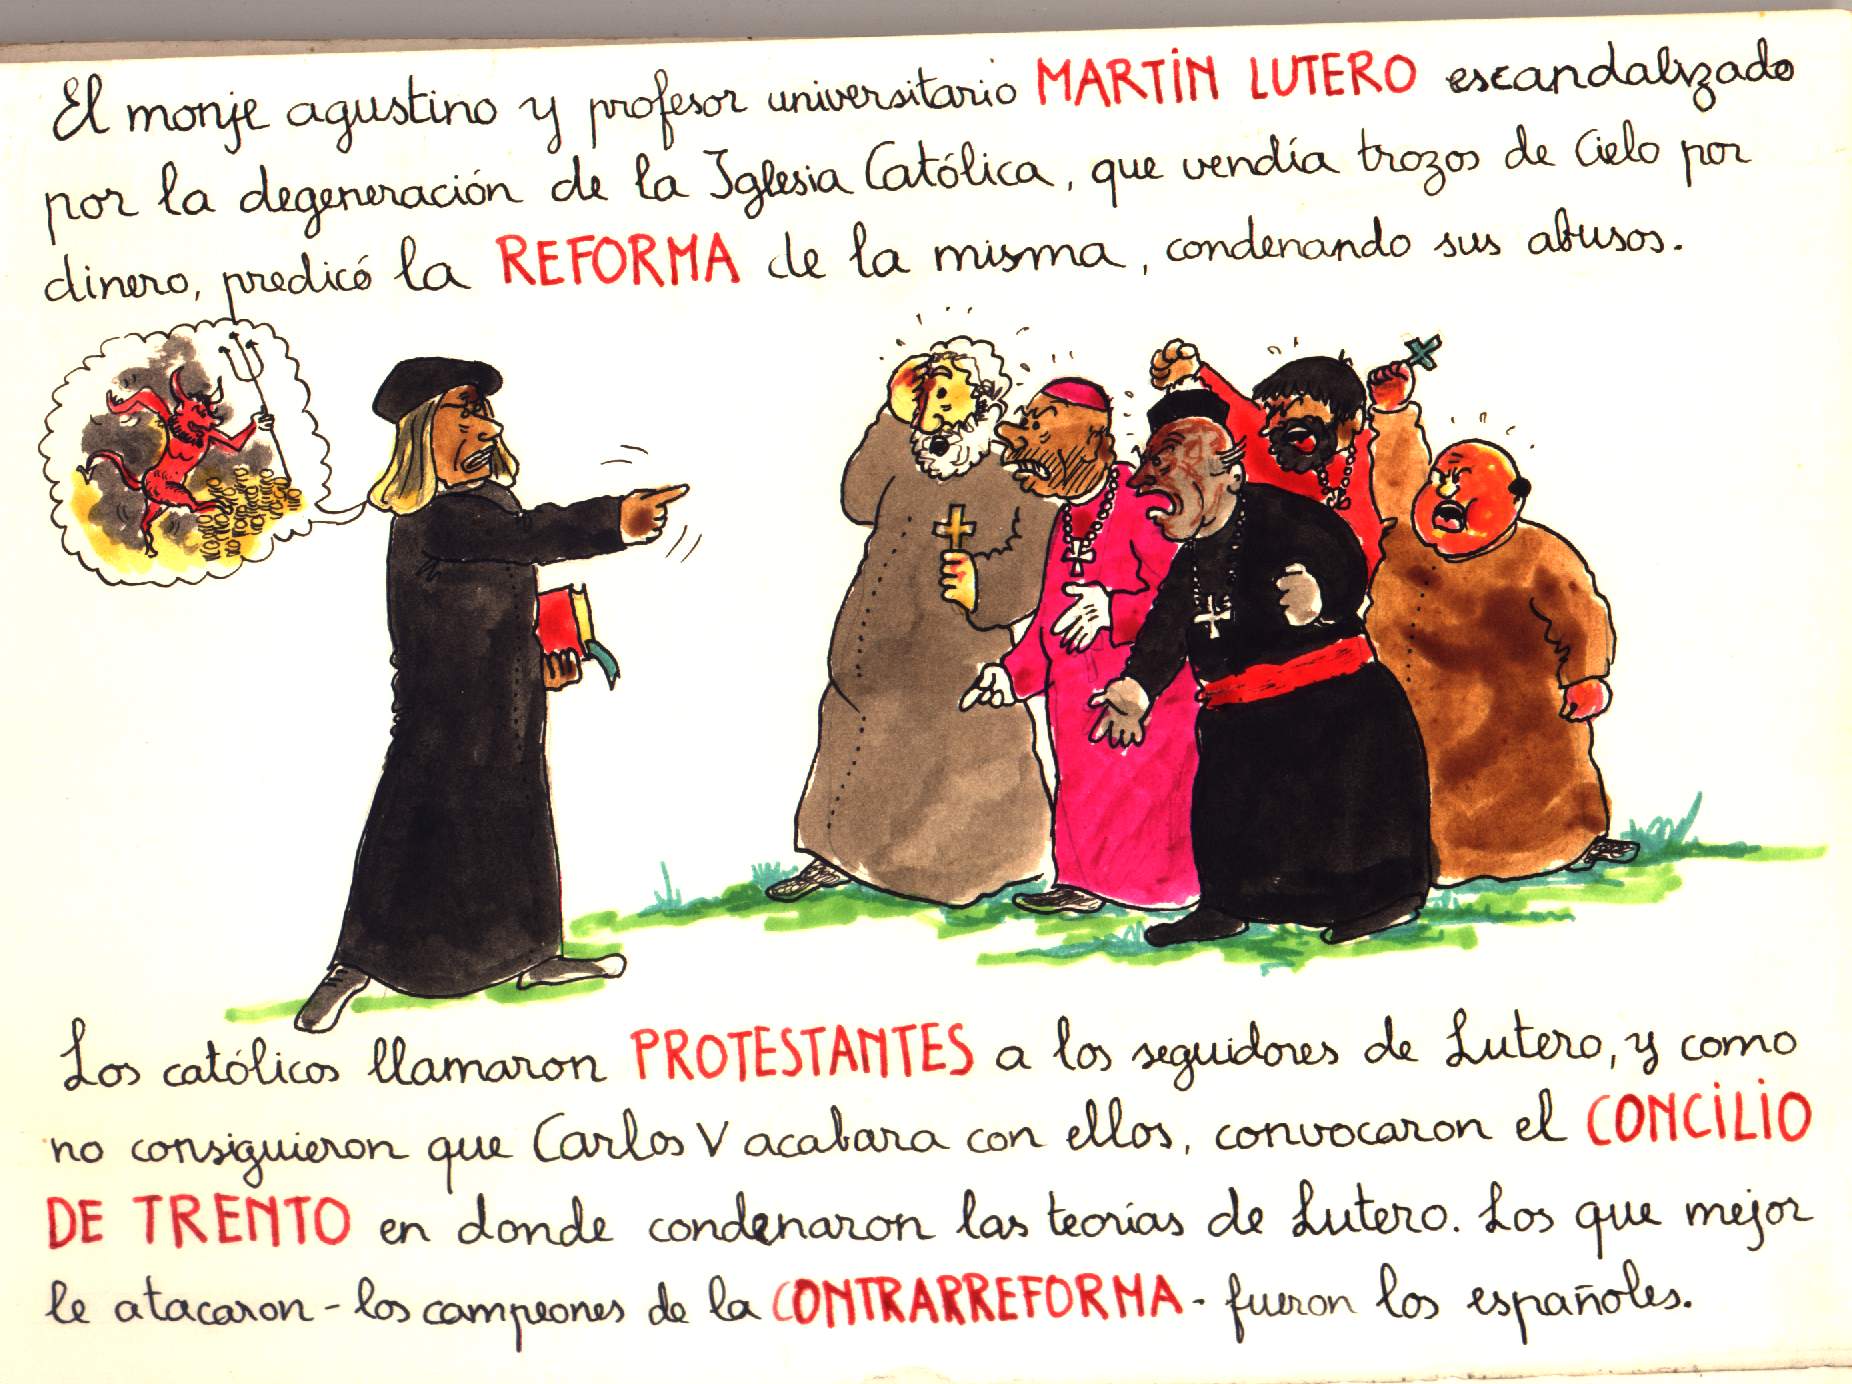 El monje agustino y profesor universitario MARTÍN LUTERO escandalizado
por la degeneración de la Iglesia Católica, que vendía trozos de Cielo por
dinero, predicó la REFORMA de la misma, condenando sus abusos.
Los católicos llamaron PROTESTANTES a los seguidores de Lutero, y como
no consiguieron que Carlos V acabara con ellos, convocaron el CONCILIO
DE TRENTO en donde condenaron las teorías de Lutero. Los que mejor
le atacaron - los campeones de la CONTRARREFORMA - fueron los españoles.